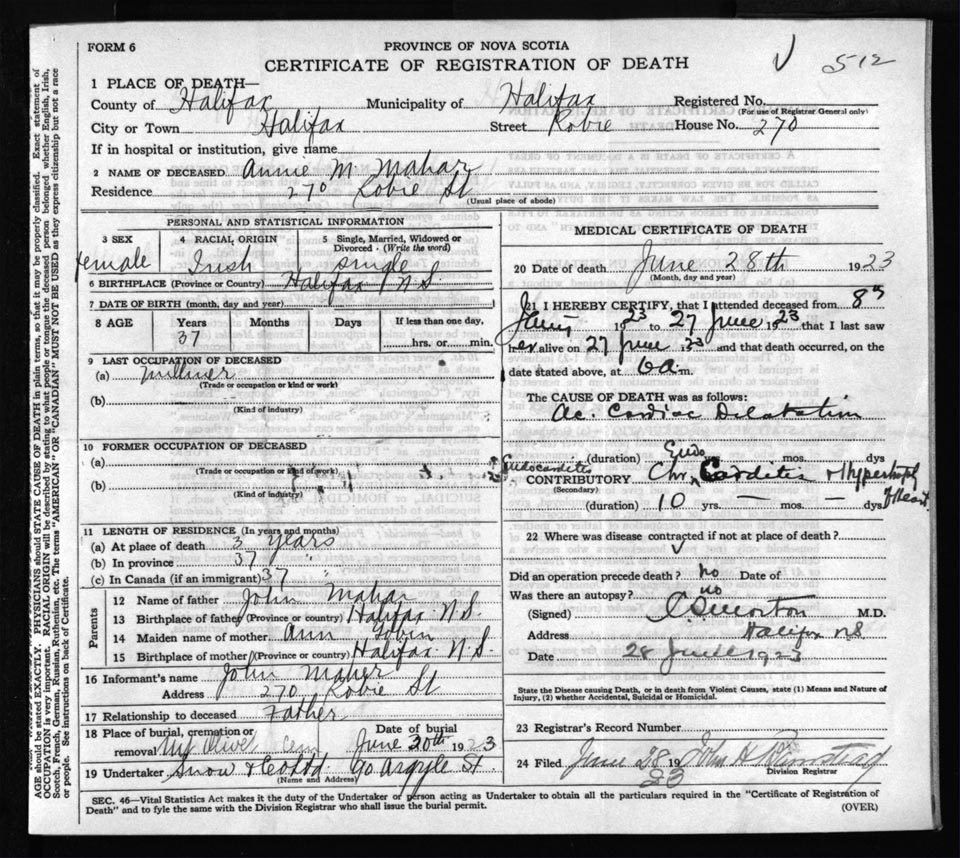 FORM 6
PROVINCE OF NOVA SCOTIA
CERTIFICATE OF REGISTRATION OF DEATH
512
1 PLACE OF DEATH—
County of Halifax Municipality of Halifax Registered No.
(For use of Registrar General only)
City or Town Halifax Street Robie House No. 270
If in hospital or institution, give name
2 NAME OF DECEASED Annie M. Mahar
Residence 270 Robie St
(Usual place of abode)
PERSONAL AND STATISTICAL INFORMATION
3 SEX 4 RACIAL ORIGIN 5 Single, Married, Widowed or Divorced (Write the word)
Female Irish single
6 BIRTHPLACE (Province or Country) Halifax N.S.
7 DATE OF BIRTH (month, day and year)
8 AGE Years Months Days If less than one day,
37 hrs. or min.
9 LAST OCCUPATION OF DECEASED
(a) Milliner
(Trade or occupation or kind of work)
(b)
(Kind of industry)
10 FORMER OCCUPATION OF DECEASED
(a)
(Trade or occupation or kind of work)
(b)
(Kind of industry)
11 LENGTH OF RESIDENCE (In years and months)
(a) At place of death 3 years
(b) In province 37 "
(c) In Canada (if an immigrant) 37 "
Parents
12 Name of father John Mahar
13 Birthplace of father (Province or country) Halifax N.S.
14 Maiden name of mother Ann
15 Birthplace of mother (Province or country) Halifax N.S.
16 Informant's name John Maher
Address 270 Robie St
17 Relationship to deceased Father
18 Place of burial, cremation or removal Mt Olivet Cem Date of burial June 30th 1923
19 Undertaker Snow & Co Ltd 90 Argyle St
(Name and Address)
MEDICAL CERTIFICATE OF DEATH
20 Date of death June 28th 1923
(Month, day and year)
21 I HEREBY CERTIFY, that I attended deceased from 8th
June 1923 to 27 June 1923 that I last saw
her alive on 27 June 1923 and that death occurred, on the
date stated above, at 6 a m.
The CAUSE OF DEATH was as follows:
Ac. Cardiac Dilatation
(duration) yrs. mos. dys
Endocarditis
CONTRIBUTORY Chr. Endo Carditis & Hypertrophy of Heart
(Secondary)
(duration) 10 yrs. — mos. — dys
22 Where was disease contracted if not at place of death?
Did an operation precede death? no Date of
Was there an autopsy? no
(Signed) C S Morton M.D.
Address Halifax NS
Date 28 June 1923
State the Disease causing Death, or in death from Violent Causes, state (1) Means and Nature of
Injury, (2) whether Accidental, Suicidal or Homicidal.
23 Registrar's Record Number
24 Filed June 28 1923 John A
Division Registrar
SEC. 46—Vital Statistics Act makes it the duty of the Undertaker or person acting as Undertaker to obtain all the particulars required in the "Certificate of Registration of
Death" and to fyle the same with the Division Registrar who shall issue the burial permit.
(OVER)
AGE should be stated EXACTLY. PHYSICIANS should STATE CAUSE OF DEATH in plain terms, so that it may be properly classified. Exact statement of
OCCUPATION is very important. RACIAL ORIGIN will be described by stating to what people or tongue the deceased person belonged whether English, Irish,
Scotch, French, German, Russian, Ruthenian, etc. The terms "AMERICAN" OR "CANADIAN" MUST NOT BE USED as they express citizenship but not a race
or people. See instructions on back of Certificate.